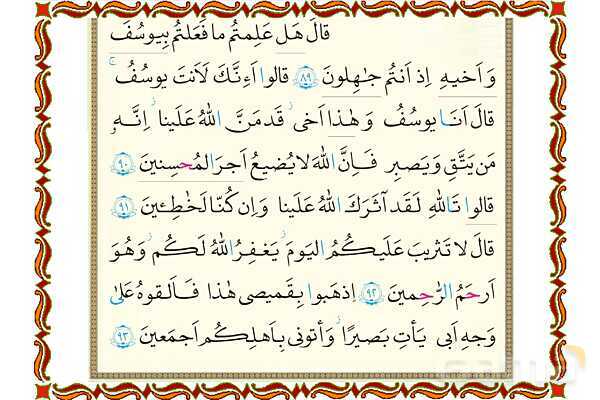 قالَ هَل عَلِمتُم ما فَعَلتُم بِيوسُفَ
وَ اَخيهِ اِذ اَنتُم جٰهِلونَ ﴿٨٩﴾ قالوا اَءِنَّكَ لَاَنتَ يوسُفُ ۚ
قالَ اَنَا يوسُفُ وَ هٰذا اَخى ۖ قَد مَنَّ اللهُ عَلَينا ۖ اِنَّهُ
مَن يَتَّقِ وَ يَصبِر فَاِنَّ اللهَ لا يُضيعُ اَجرَ المُحسِنينَ ﴿٩٠﴾
قالوا تَاللهِ لَقَد آثَرَكَ اللهُ عَلَينا وَ اِن كُنّا لَخٰطِـٔينَ ﴿٩١﴾
قالَ لا تَثريبَ عَلَيكُمُ اليَومَ ۖ يَغفِرُ اللهُ لَكُم ۖ وَ هُوَ
اَرحَمُ الرّٰحِمينَ ﴿٩٢﴾ اِذهَبوا بِقَميصى هٰذا فَاَلقوهُ عَلىٰ
وَجهِ اَبى يَأتِ بَصيرًا وَأتونى بِاَهلِكُم اَجمَعينَ ﴿٩٣﴾